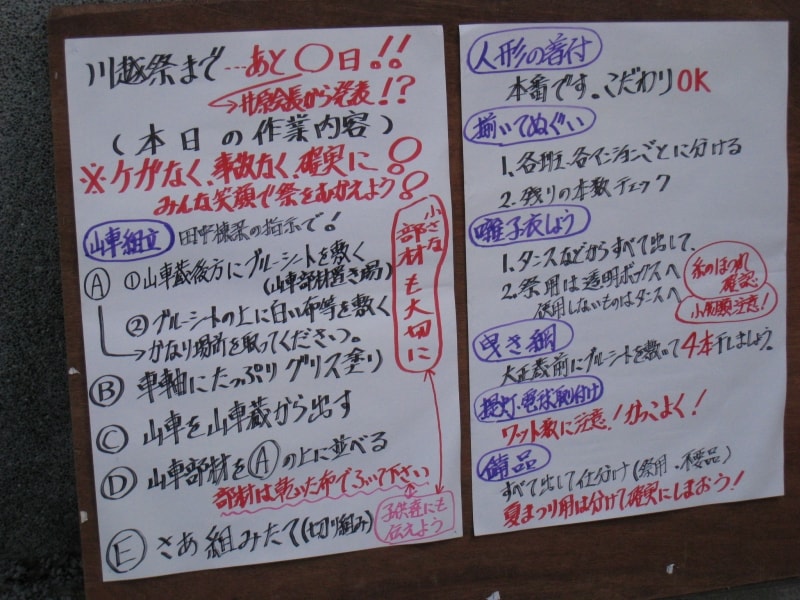 川越祭まで…あと〇日!!
→井原会長から発表!?
(本日の作業内容)
※ケガなく、事故なく、確実に!
みんな笑顔で祭をむかえよう!
山車組立 田中棟梁の指示で!
Ⓐ ①山車蔵後方にブルーシートを敷く
(山車部材置き場)
②ブルーシートの上に白い布等を敷く
→かなり場所を取ってください。
Ⓑ 車軸にたっぷりグリス塗り
Ⓒ 山車を山車蔵から出す
Ⓓ 山車部材をⒶの上に並べる
部材は乾いた布でふいて下さい
Ⓔ さあ組みたて(切り組み)
小さな
部材も大切に
子供達にも
伝えよう
人形の着付
本番です。こだわりOK
揃いてぬぐい
1.各班、各マンションごとに分ける
2.残りの本数チェック
囃子衣しょう
1.タンスなどからすべて出して、
2.祭用は透明ボックスへ
使用しないものはタンスへ
糸のほつれ
確認
小物類注意!
曳き綱
大正蔵前にブルーシートを敷いて4本干しましょう。
提灯、電球取付け
ワット数に注意!かっこよく!
備品
すべて出して仕分け(祭用・不要品)
夏まつり用は分けて確実にしまおう!